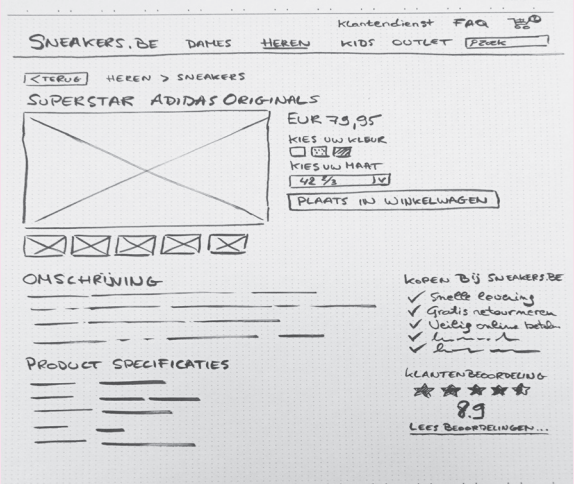 Klantendienst FAQ
SNEAKERS.BE DAMES HEREN KIDS OUTLET
< TERUG HEREN > SNEAKERS
SUPERSTAR ADIDAS ORIGINALS
EUR 79,95
KIES UW KLEUR
KIES UW MAAT
42 2/3
PLAATS IN WINKELWAGEN
OMSCHRIJVING
KOPEN Bij SNEAKERS.BE
✓ Snelle levering
✓ Gratis retourneren
✓ Veilig online
PRODUCT SPECIFICATIES
KLANTENBEOORDELING
8.9
LEES BEOORDELINGEN...